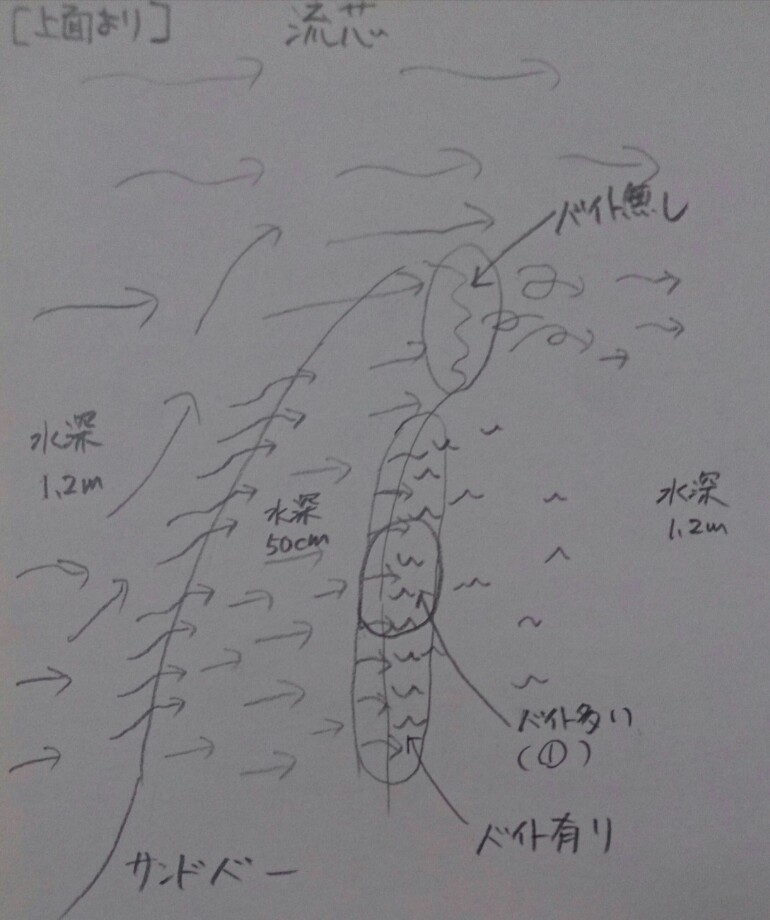 [上面より]
流芯
バイト無し
水深
1.2m
水深
50cm
水深
1.2m
バイト多い
(①)
バイト有り
サンドバー